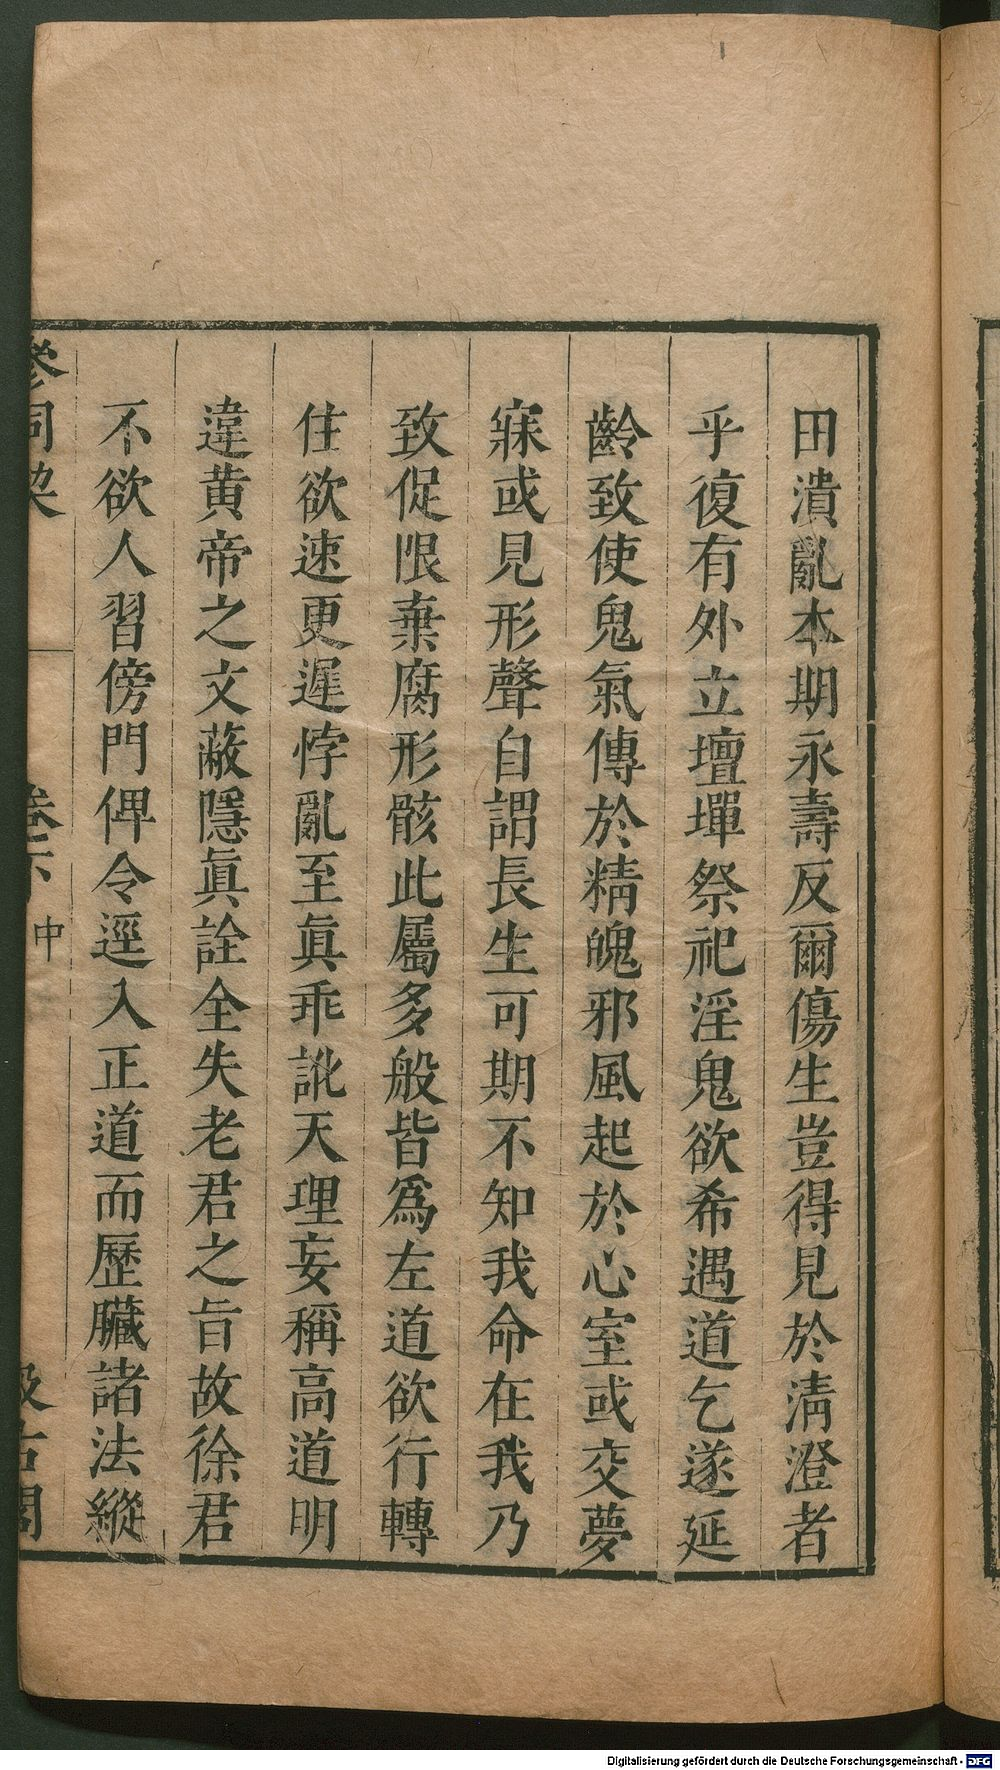 田潰亂本期永壽反爾傷生豈得見於清澄者
乎復有外立壇墠祭祀淫鬼欲希遇道乞遂延
齡致使鬼氣傳於精魄邪風起於心室或交夢
寐或見形聲自謂長生可期不知我命在我乃
致促限棄腐形骸此屬多般皆爲左道欲行轉
住欲速更遲悖亂至眞乖訛天理妄稱高道明
違黄帝之文蔽隱眞詮全失老君之旨故徐君
不欲人習傍門俾令逕入正道而歷臟諸法縱
參同契 卷六 中 汲古閣
Digitalisierung gefördert durch die Deutsche Forschungsgemeinschaft - DFG